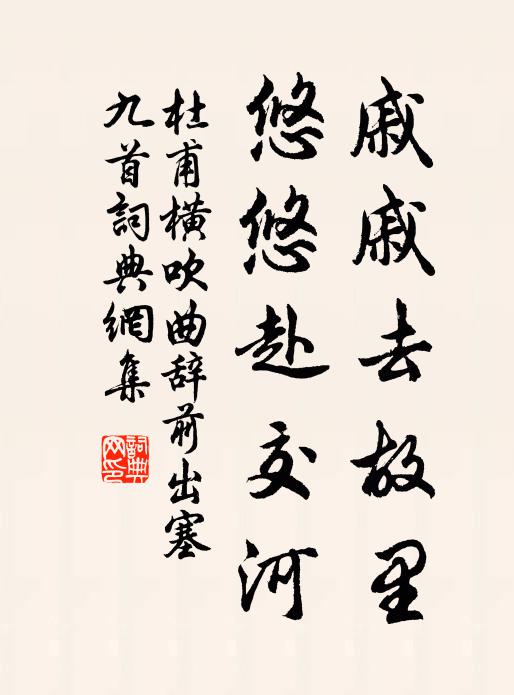 戚戚去故里
悠悠赴交河
杜甫橫吹曲辞前出塞
九首詞典網集
詞典网印